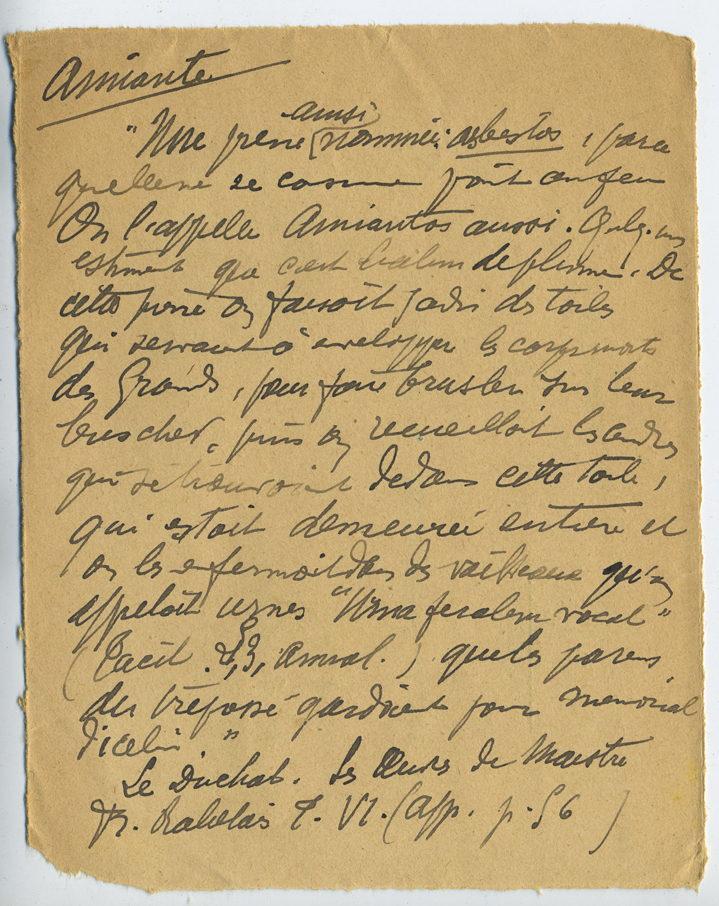 Amiante
ainsi
"Une pierre nommée asbestos, parce
qu'elle ne se consume point au feu
On l'appelle Amiantos aussi. Quelq. uns
estiment que c'est l'alum de plume. De
cette pierre on faisoit jadis des toiles
qui servaient à envelopper les corps morts
des Grands, pour faire brusler sur leur
buscher, puis on recueilloit les cendres
qui se trouvoient dedans cette toile,
qui estoit demeurée entiere et
on les enfermoit dans des vaisseaux qu'on
appeloit urnes "Urna feralem vocat"
(Tacit. 3, annal.) que les parens
du trépassé gardoient pour memorial
d'icelui."
Le Duchat. Les Œuvres de Maistre
Fr. Rabelais T. VI. (app. p. 56)